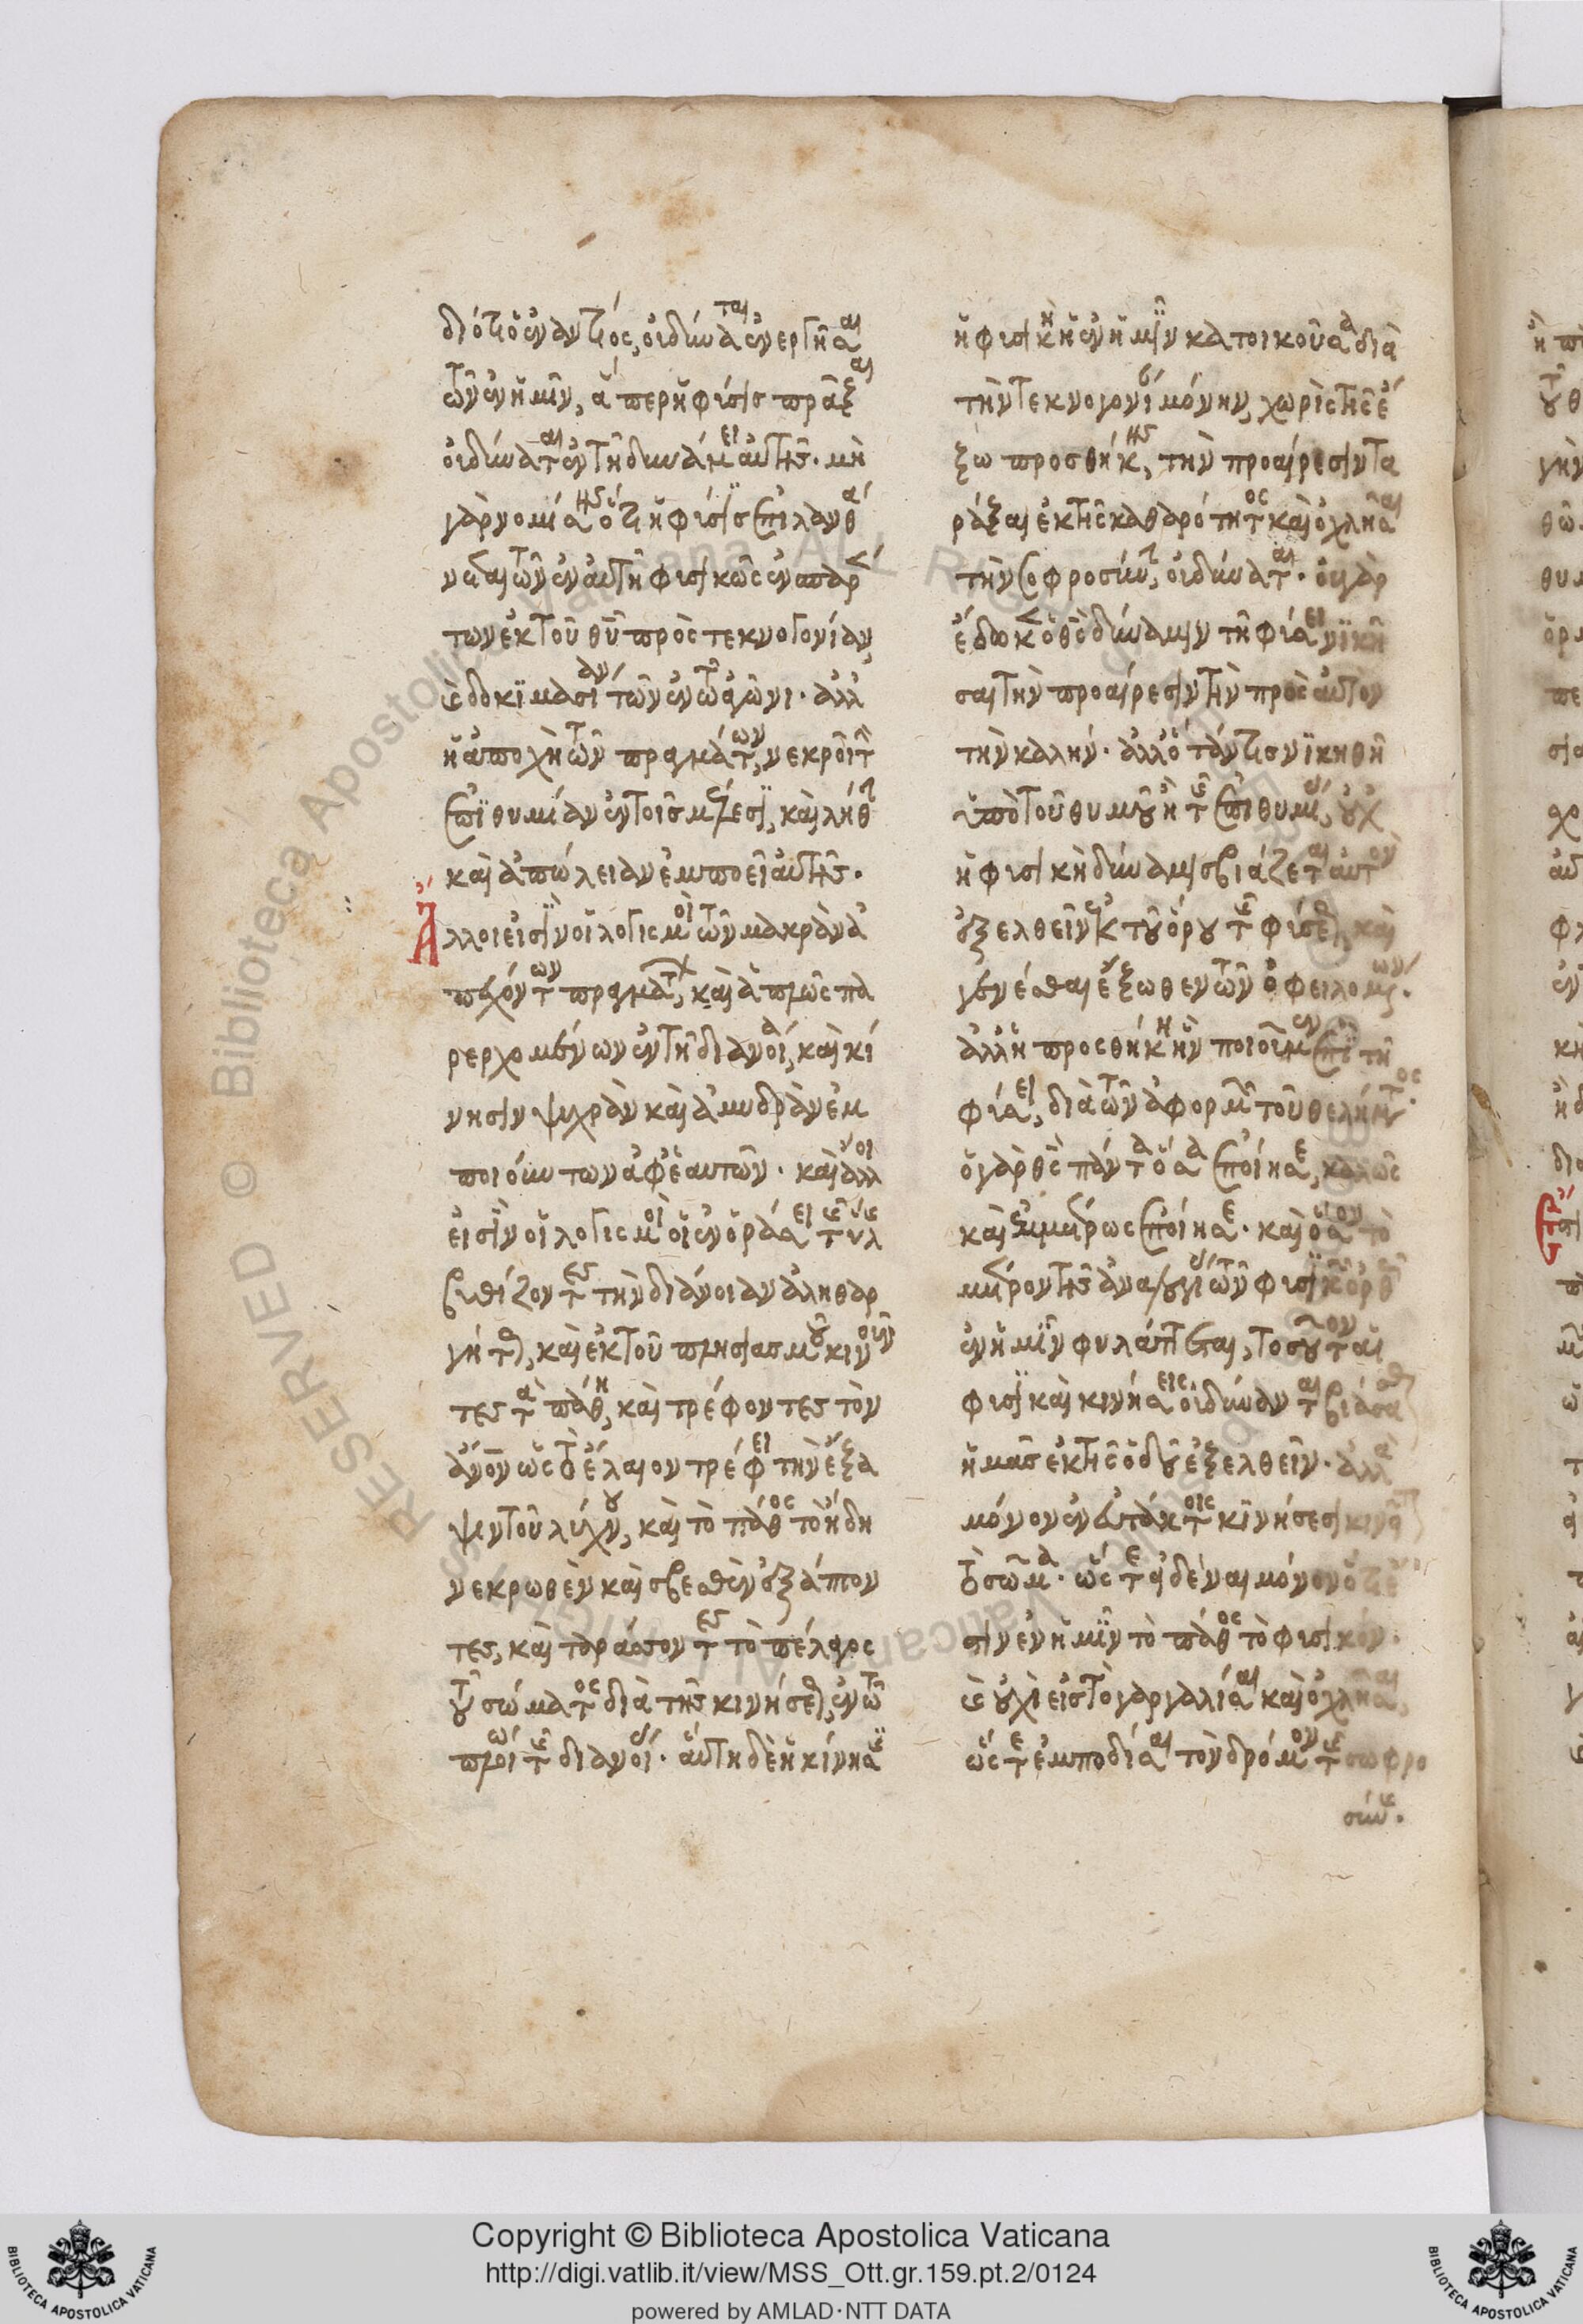 διότι ὁ ἐναντίος, οὐ δύναται ἐνεργῆσαι
τῶν ἐν ἡμῖν, ἅπερ ἡ φύσις πρᾶξαι
οὐ δύναται ἐν τῇ δυνάμει αὐτῆς. μὴ
γὰρ νομίσῃς ὅτι ἡ φύσις ἐπιλανθά
νεται τῶν ἐν αὐτῇ φυσικῶς ἐνσπαρέν
των ἐκ τοῦ θῦ πρὸς τεκνογονίαν,
καὶ δοκιμασίαν τῶν ἐν τῷ ἀγῶνι. ἀλλ
ἡ ἀποχὴ τῶν πραγμάτων, νεκροῖ τὴν
ἐπιθυμίαν ἐν τοῖς μέλεσι, καὶ λήθην
καὶ ἀπώλειαν ἐμποιεῖ αὐτῆς.
Ἄλλοι εἰσὶν οἱ λογισμοὶ τῶν μακρὰν ἀ
πεχόντων πραγμάτων, καὶ ἁπλῶς πα
ρερχομένων ἐν τῇ διανοίᾳ, καὶ κί
νησιν ψυχρὰν καὶ ἀμυδρὰν ἐμ
ποιούντων ἀφ' ἑαυτῶν. καὶ ἄλλοι
εἰσὶν οἱ λογισμοὶ οἱ ἐν ὁράσει τῆς ὕλης
βυθίζοντες τὴν διάνοιαν ἀληθαρ
γήτως, καὶ ἐκ τοῦ πλησιασμοῦ κινοῦν
τες τὰ πάθη, καὶ τρέφοντες τὸν
ἄνον ὡς τὸ ἔλαιον τρέφει τὴν ἔξα
ψιν τοῦ λύχνου, καὶ τὸ πάθος τὸ ἤδη
νεκρωθὲν καὶ σβεσθὲν ἐξάπτον
τες, καὶ ταράσσοντες τὸ πέλαγος
τοῦ σώματος διὰ τῆς κινήσεως, ἐν τῷ
πλοίῳ τῆς διανοίας. αὕτη δὲ ἡ κίνησις
ἡ φυσικὴ ἡ ἐν ἡμῖν κατοικοῦσα διὰ
τὴν τεκνογονίαν μόνην, χωρὶς τῆς ἔ
ξω προσθήκης, τὴν προαίρεσιν τα
ράξαι ἐκ τῆς καθαρότητος καὶ ὀχλῆσαι
τὴν σοφροσύνην, οὐ δύναται. οὐ γὰρ
ἔδωκεν ὁ θς δύναμιν τῇ φύσει νικῆ
σαι τὴν προαίρεσιν τὴν πρὸς αὐτὸν
τὴν καλήν. ἀλλ' ὅταν τις νικηθῇ
ὑπὸ τοῦ θυμοῦ ἢ τῆς ἐπιθυμίας, οὐχ
ἡ φυσικὴ δύναμις βιάζεται αὐτὸν
ἐξελθεῖν ἐκ τοῦ ὅρου τῆς φύσεως, καὶ
γενέσθαι ἔξωθεν τῶν ὀφειλομένων.
ἀλλ' ἡ προσθήκη ἣν ποιοῦμεν ἐπὶ τῇ
φύσει, διὰ τῶν ἀφορμῶν τοῦ θελήματος.
ὁ γὰρ θς πάντα ὅσα ἐποίησε, καλῶς
καὶ ἐμμέτρως ἐποίησε. καὶ ὅσον τὸ
μέτρον τῆς ἀναλογίας τῶν φυσικῶν ὀρθῶς
ἐν ἡμῖν φυλάττεται, τοσοῦτον αἱ
φυσικαὶ κινήσεις οὐ δύνανται βιάσασθαι
ἡμᾶς ἐκ τῆς ὁδοῦ ἐξελθεῖν. ἀλλὰ
μόνον ἐν εὐτάκτοις κινήσεσι κινεῖται
τὸ σῶμα. ὥστε εἰδέναι μόνον ὅτι ἔ
στιν ἐν ἡμῖν τὸ πάθος τὸ φυσικόν.
καὶ οὐχὶ εἰς τὸ γαργαλίσαι καὶ ὀχλῆσαι,
ὥστε ἐμποδίσαι τὸν δρόμον τῆς σωφρο
σύνης.
Copyright © Biblioteca Apostolica Vaticana
http://digi.vatlib.it/view/MSS_Ott.gr.159.pt.2/0124
powered by AMLAD·NTT DATA